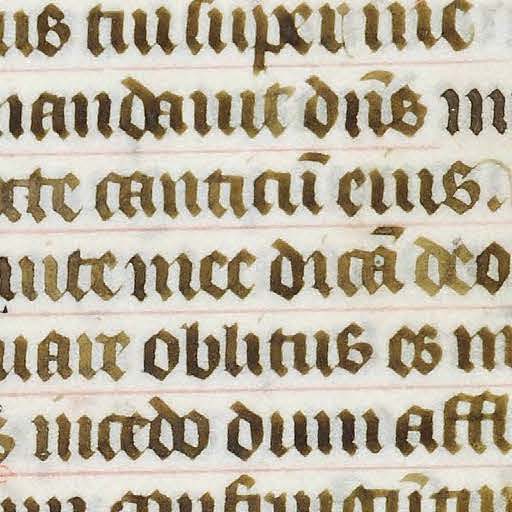 us tui super me
andauit dn̄s mi
cte canticū eius.
uite mee dicā deo
uare oblitus es m
s incedo dum affl
um confringūtur